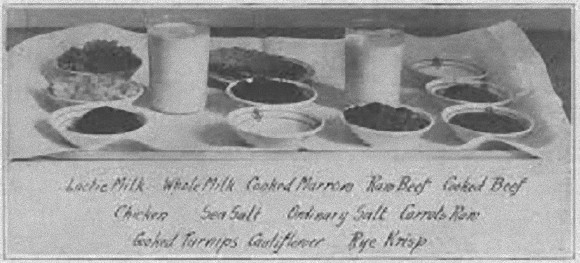 Lactic Milk Whole Milk Cooked Marrow Raw Beef Cooked Beef
Chicken Sea Salt Ordinary Salt Carrots Raw
Cooked Turnips Cauliflower Rye Krisp